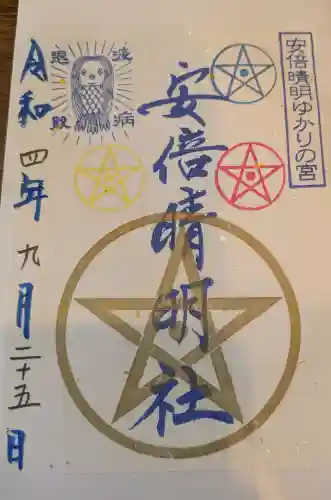 安倍晴明ゆかりの宮
安倍晴明社
疫病
退散
令和四年九月二十五日